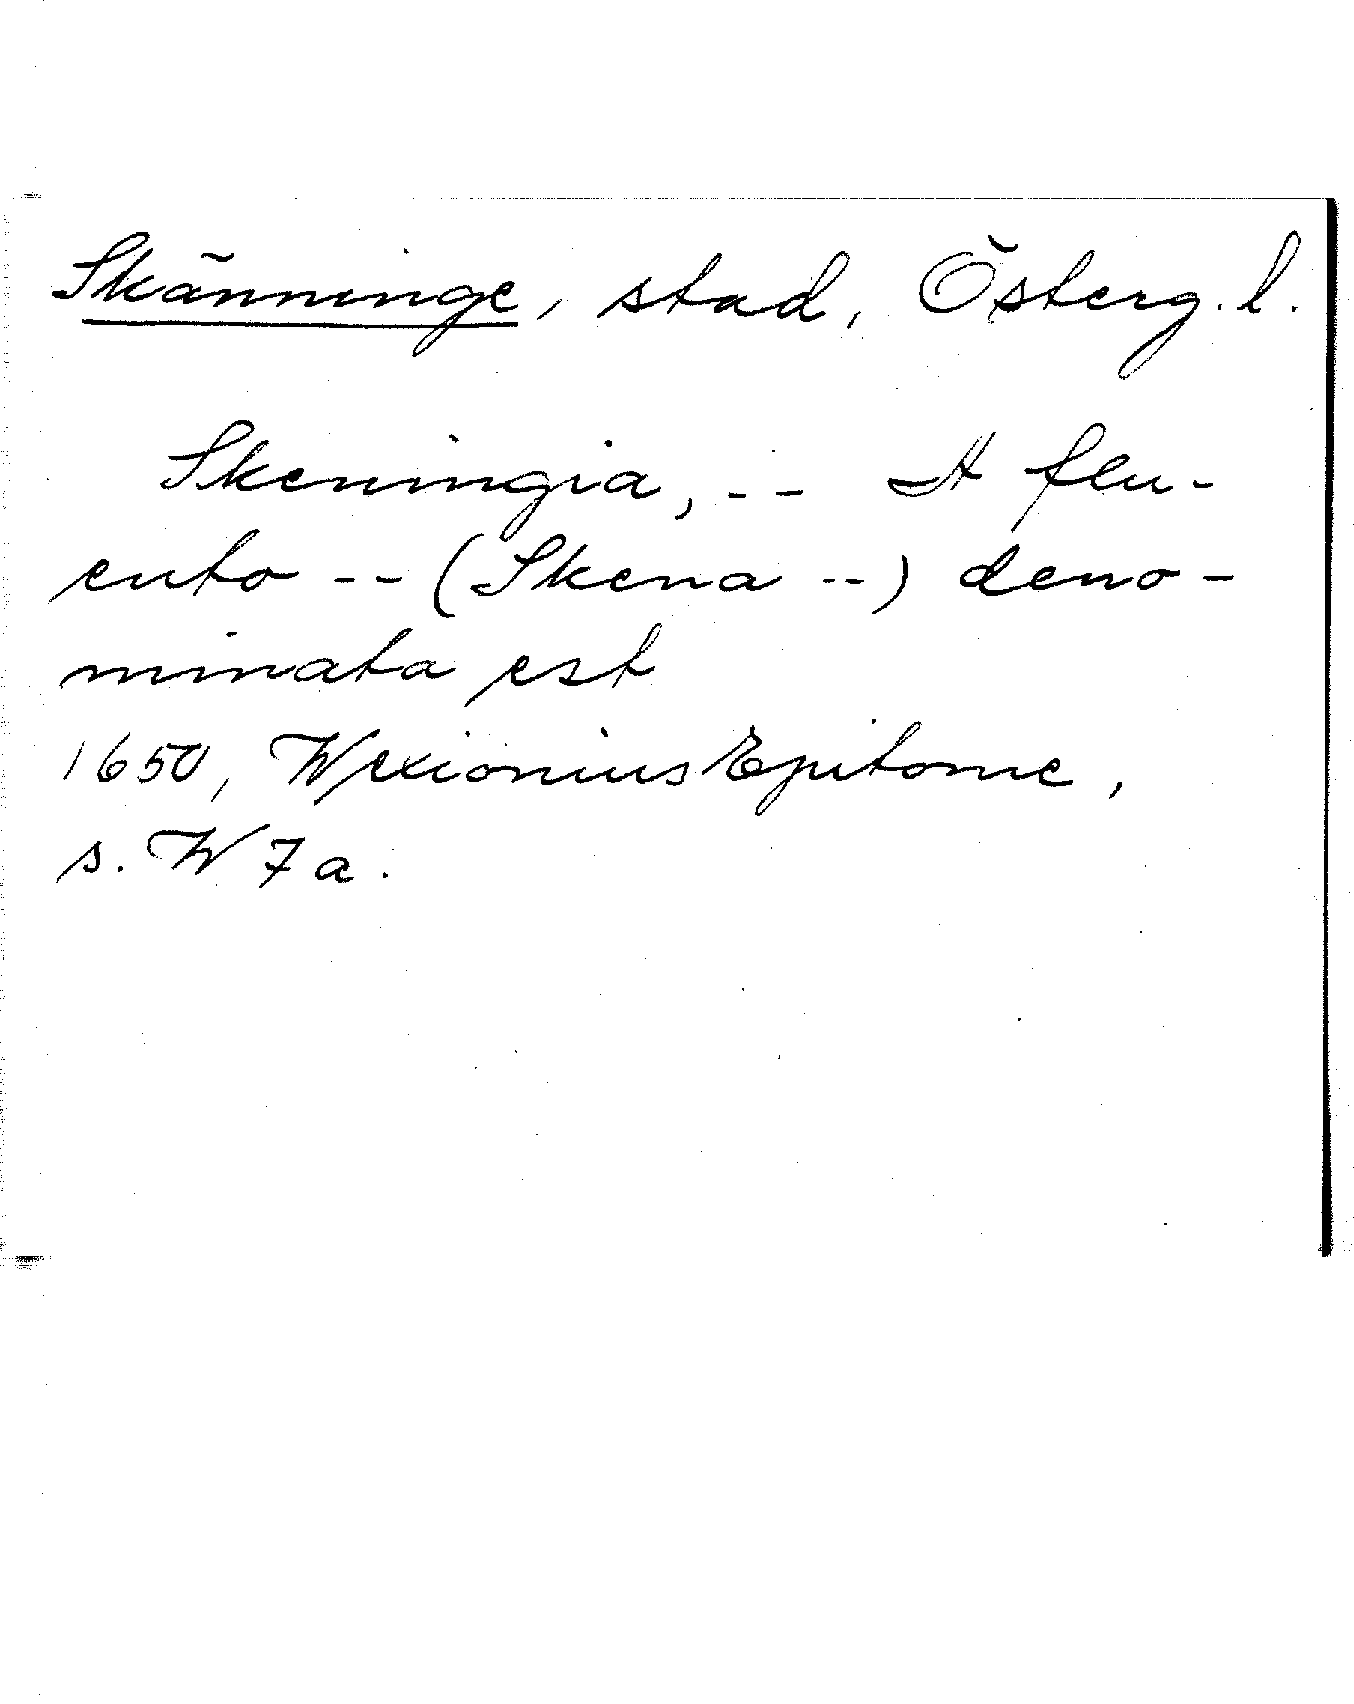 Skänninge, stad, Österg. l.
Skeningia, -- A flu-
ento -- (Skena --) deno-
minata est
1650, Wexionius Epitome,
s. W 7 a.